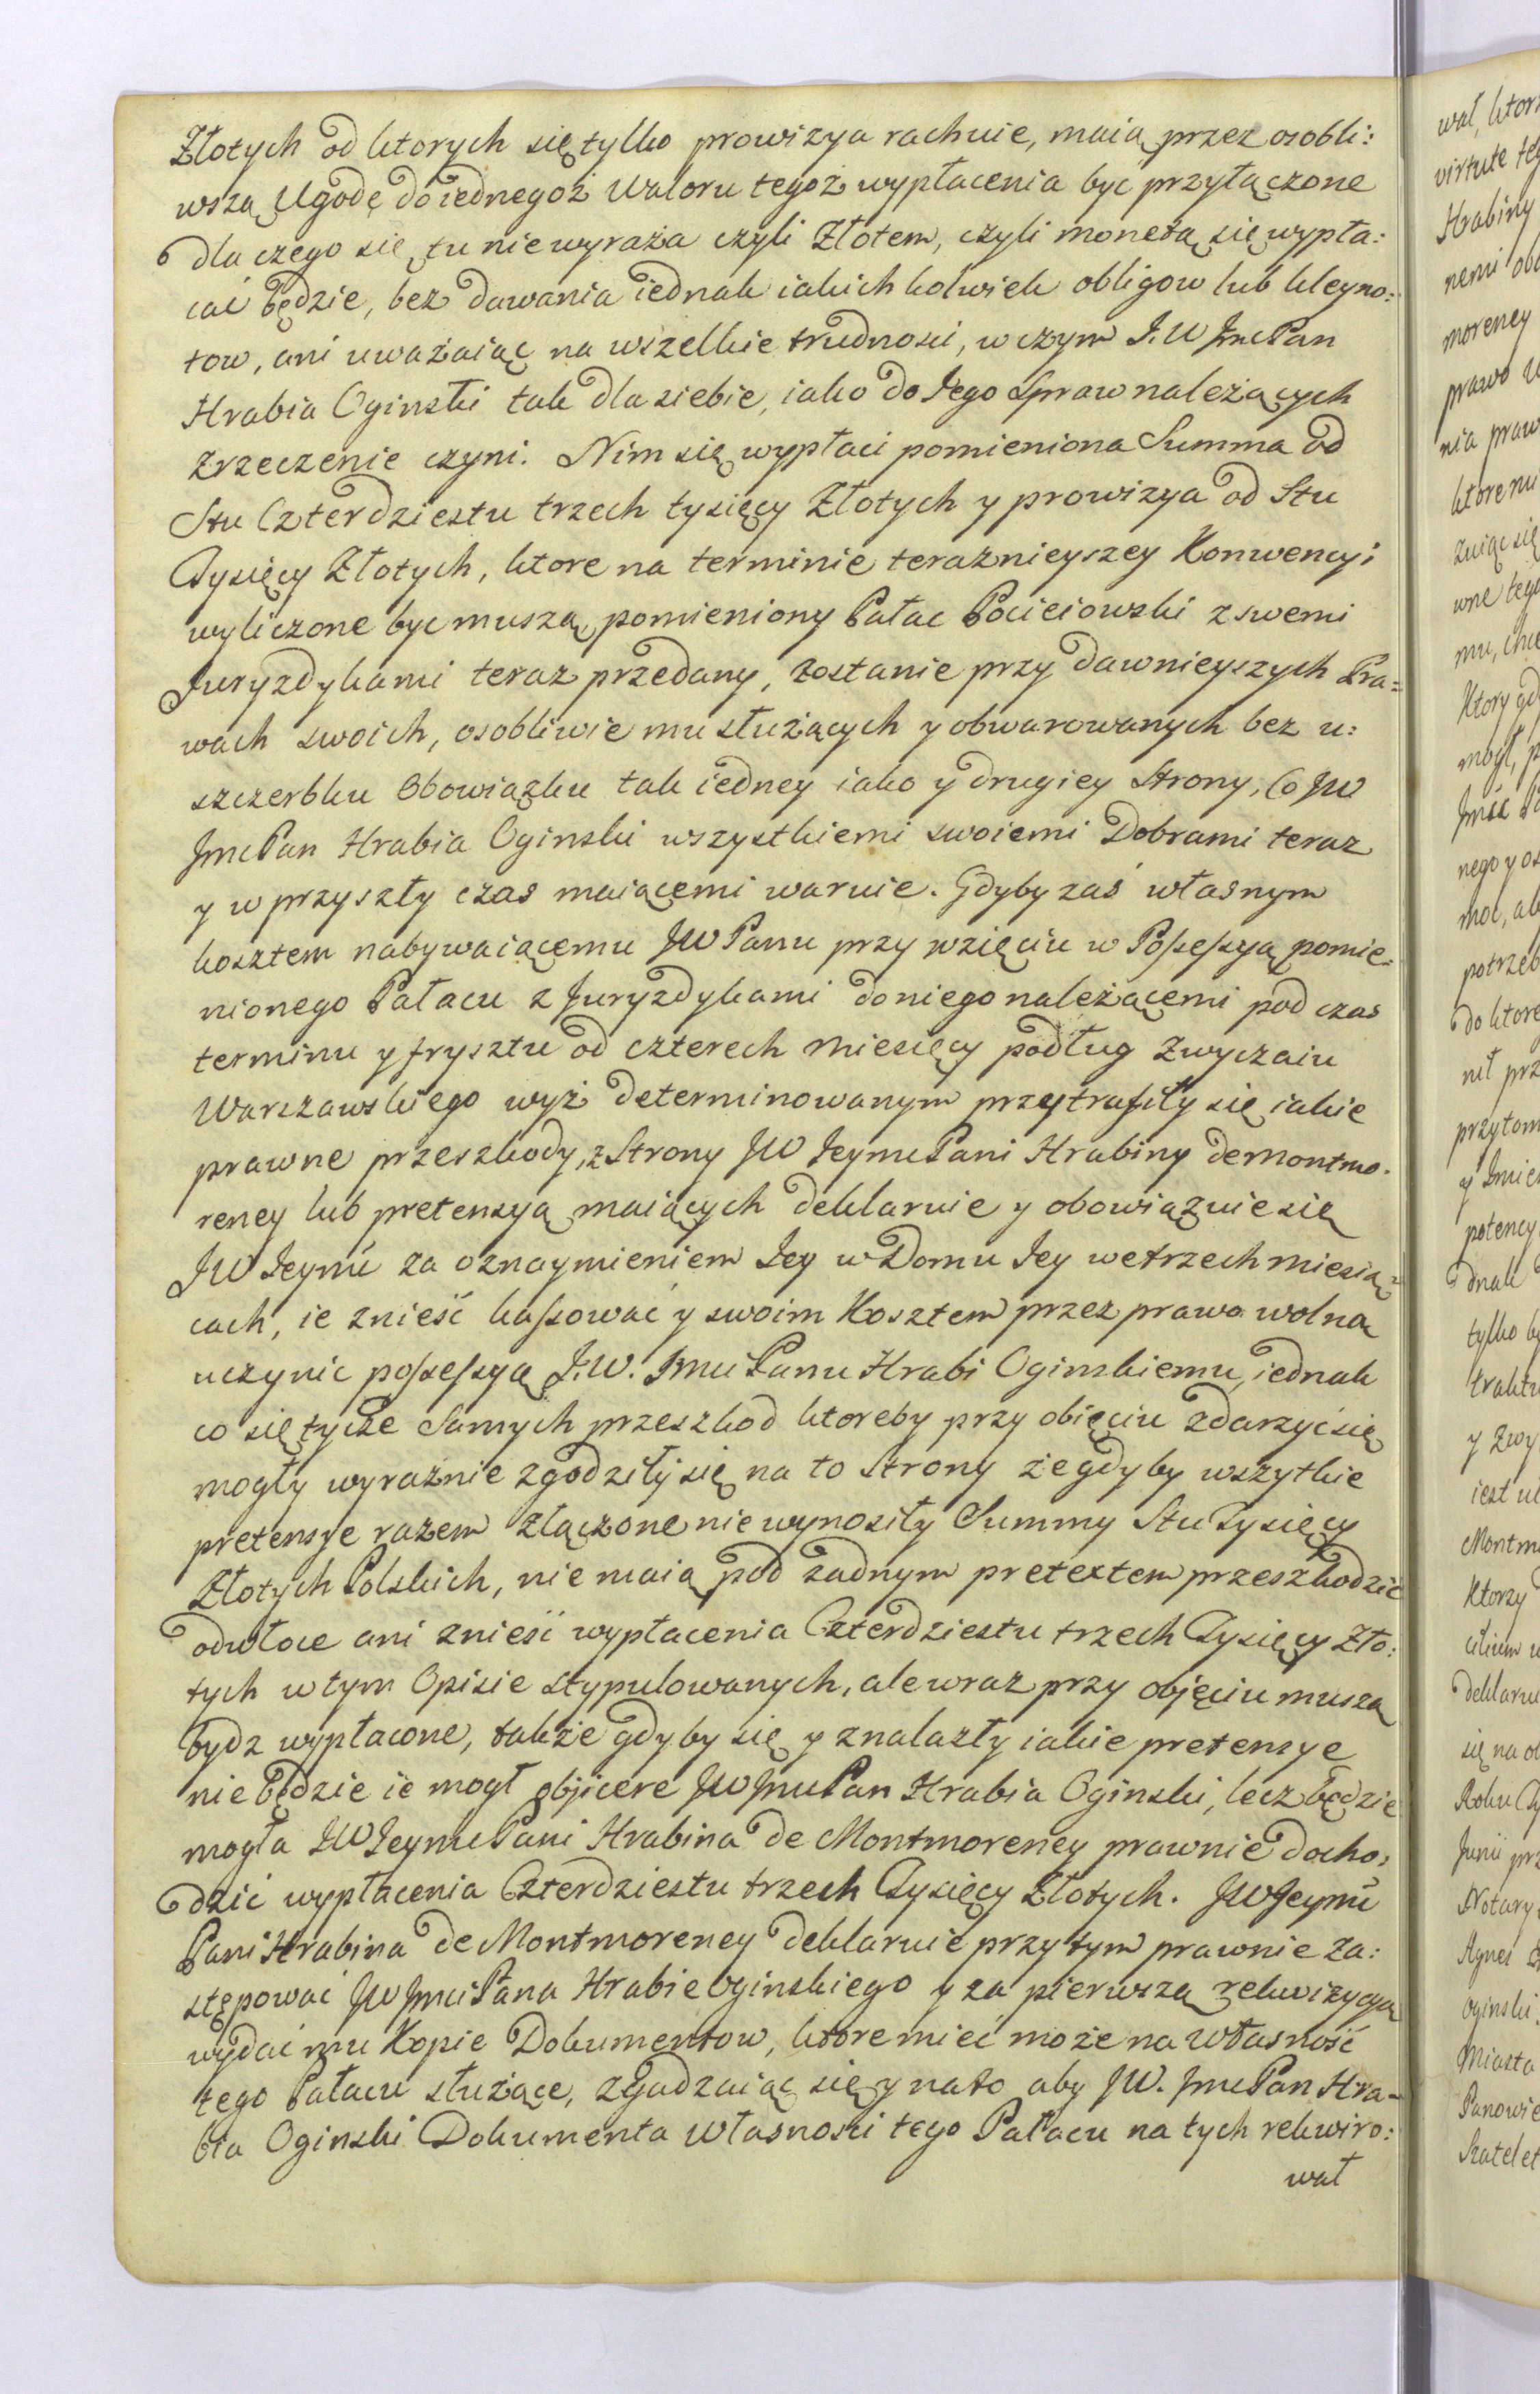 Złotych od ktorych się tylko prowizya rachuie, maią przez osobli:
wszą Ugodę do iednegoż Waloru tegoż wypłacenia byc przyłączone
dla czego się tu nie wyraża czyli Złotem, czyli monetą się wypła:
cać będzie, bez dawania iednak iakich kolwiek obligow lub kleyno:
tow, ani uważaiąc na wszelkie trudności, w czym J.W JmcPan
Hrabia Oginski tak dla siebie, iako do Jego Spraw należących
zrzeczenie czyni. Nim się wypłaci pomieniona Summa od
Stu Czterdziestu trzech tysięcy Złotych y prowizya od Stu
Tysięcy Złotych, ktore na terminie teraznieyszey Konwencyi
wyliczone byc muszą, pomieniony Pałac Pocieiowski z swemi
Juryzdykami teraz przedany, zostanie przy dawnieyszych Pra=
wach swoich, osobliwie mu służących y obwarowanych bez u:
szczerbku Obowiązku tak iedney iako y drugiey Strony, Co JW
JmcPan Hrabia Oginski wszystkiemi swoiemi Dobrami teraz
y w przyszły czas maiącemi waruie. Gdyby zaś własnym
kosztem nabywaiącemu JW Panu przy wzięciu w Possessyą pomie=
nionego Pałacu z Juryzdykami do niego należącemi pod czas
terminu y frysztu od czterech Miesięcy podług Zwyczaiu
Warszawskiego wyż determinowanym przytrafiły się iakie
prawne przeszkody, z Strony JW JeymcPani Hrabiny de Montmo.
reney lub pretensyą maiących deklaruie y obowiązuie się
JW Jeymć za oznaymieniem Jey w Domu Jey we trzech Miesią=
cach, ie znieść kassować y swoim Kosztem przez prawo wolną
uczynic possessyą J.W. JmciPanu Hrabi Oginskiemu, iednak
co się tycze Samych przeszkod ktoreby przy obięciu zdarzyć się
mogły wyraźnie zgodziły się na to Strony że gdyby wszytkie
pretensye razem złączone nie wynosiły Summy Stu Tysięcy
Złotych Polskich, nie maią pod żadnym pretextem przeszkodzić
odwłoce ani znieść wypłacenia Czterdziestu trzech Tysięcy Zło:
tych w tym Opisie stypulowanych, ale wraz przy objęciu muszą
bydz wypłacone, także gdyby się y znalazły iakie pretensye
nie będzie ie mogł objicere JW JmcPan Hrabia Oginski, lecz będzie
mogła JW JeymcPani Hrabina de Montmoreney prawnie docho,
dzić wypłacenia Czterdziestu trzech Tysięcy Złotych. JW Jeymć
Pani Hrabina de Montmoreney deklaruie przy tym prawnie Za:
stępować JW JmciPana Hrabie Oginskiego y za pierwszą rekwizycyą
wydać mu Kopie Dokumentow, ktore mieć może na Własność
tego Pałacu służące, zgadzaiąc się y na to aby JW. JmcPan Hra-
bia Oginski Dokumenta Własności tego Pałacu na tych rekwiro:
wał
wał, ktor
virtute te
Hrabiny
nemi ob
moreney
prawo
nia praw
ktoremu
wne teg
mu, chc
Ktory gd
mogł, p
nego y os
moc, ab
potrzeb
do ktore
nił prz
przytom
potency
dnak
tylko b
trakt
y zwy
iest
Montm
Ktorzy
deklaru
się na o
Roku
Junii prz
Notary
Agnes
Oginski.
Miasta
Panowie